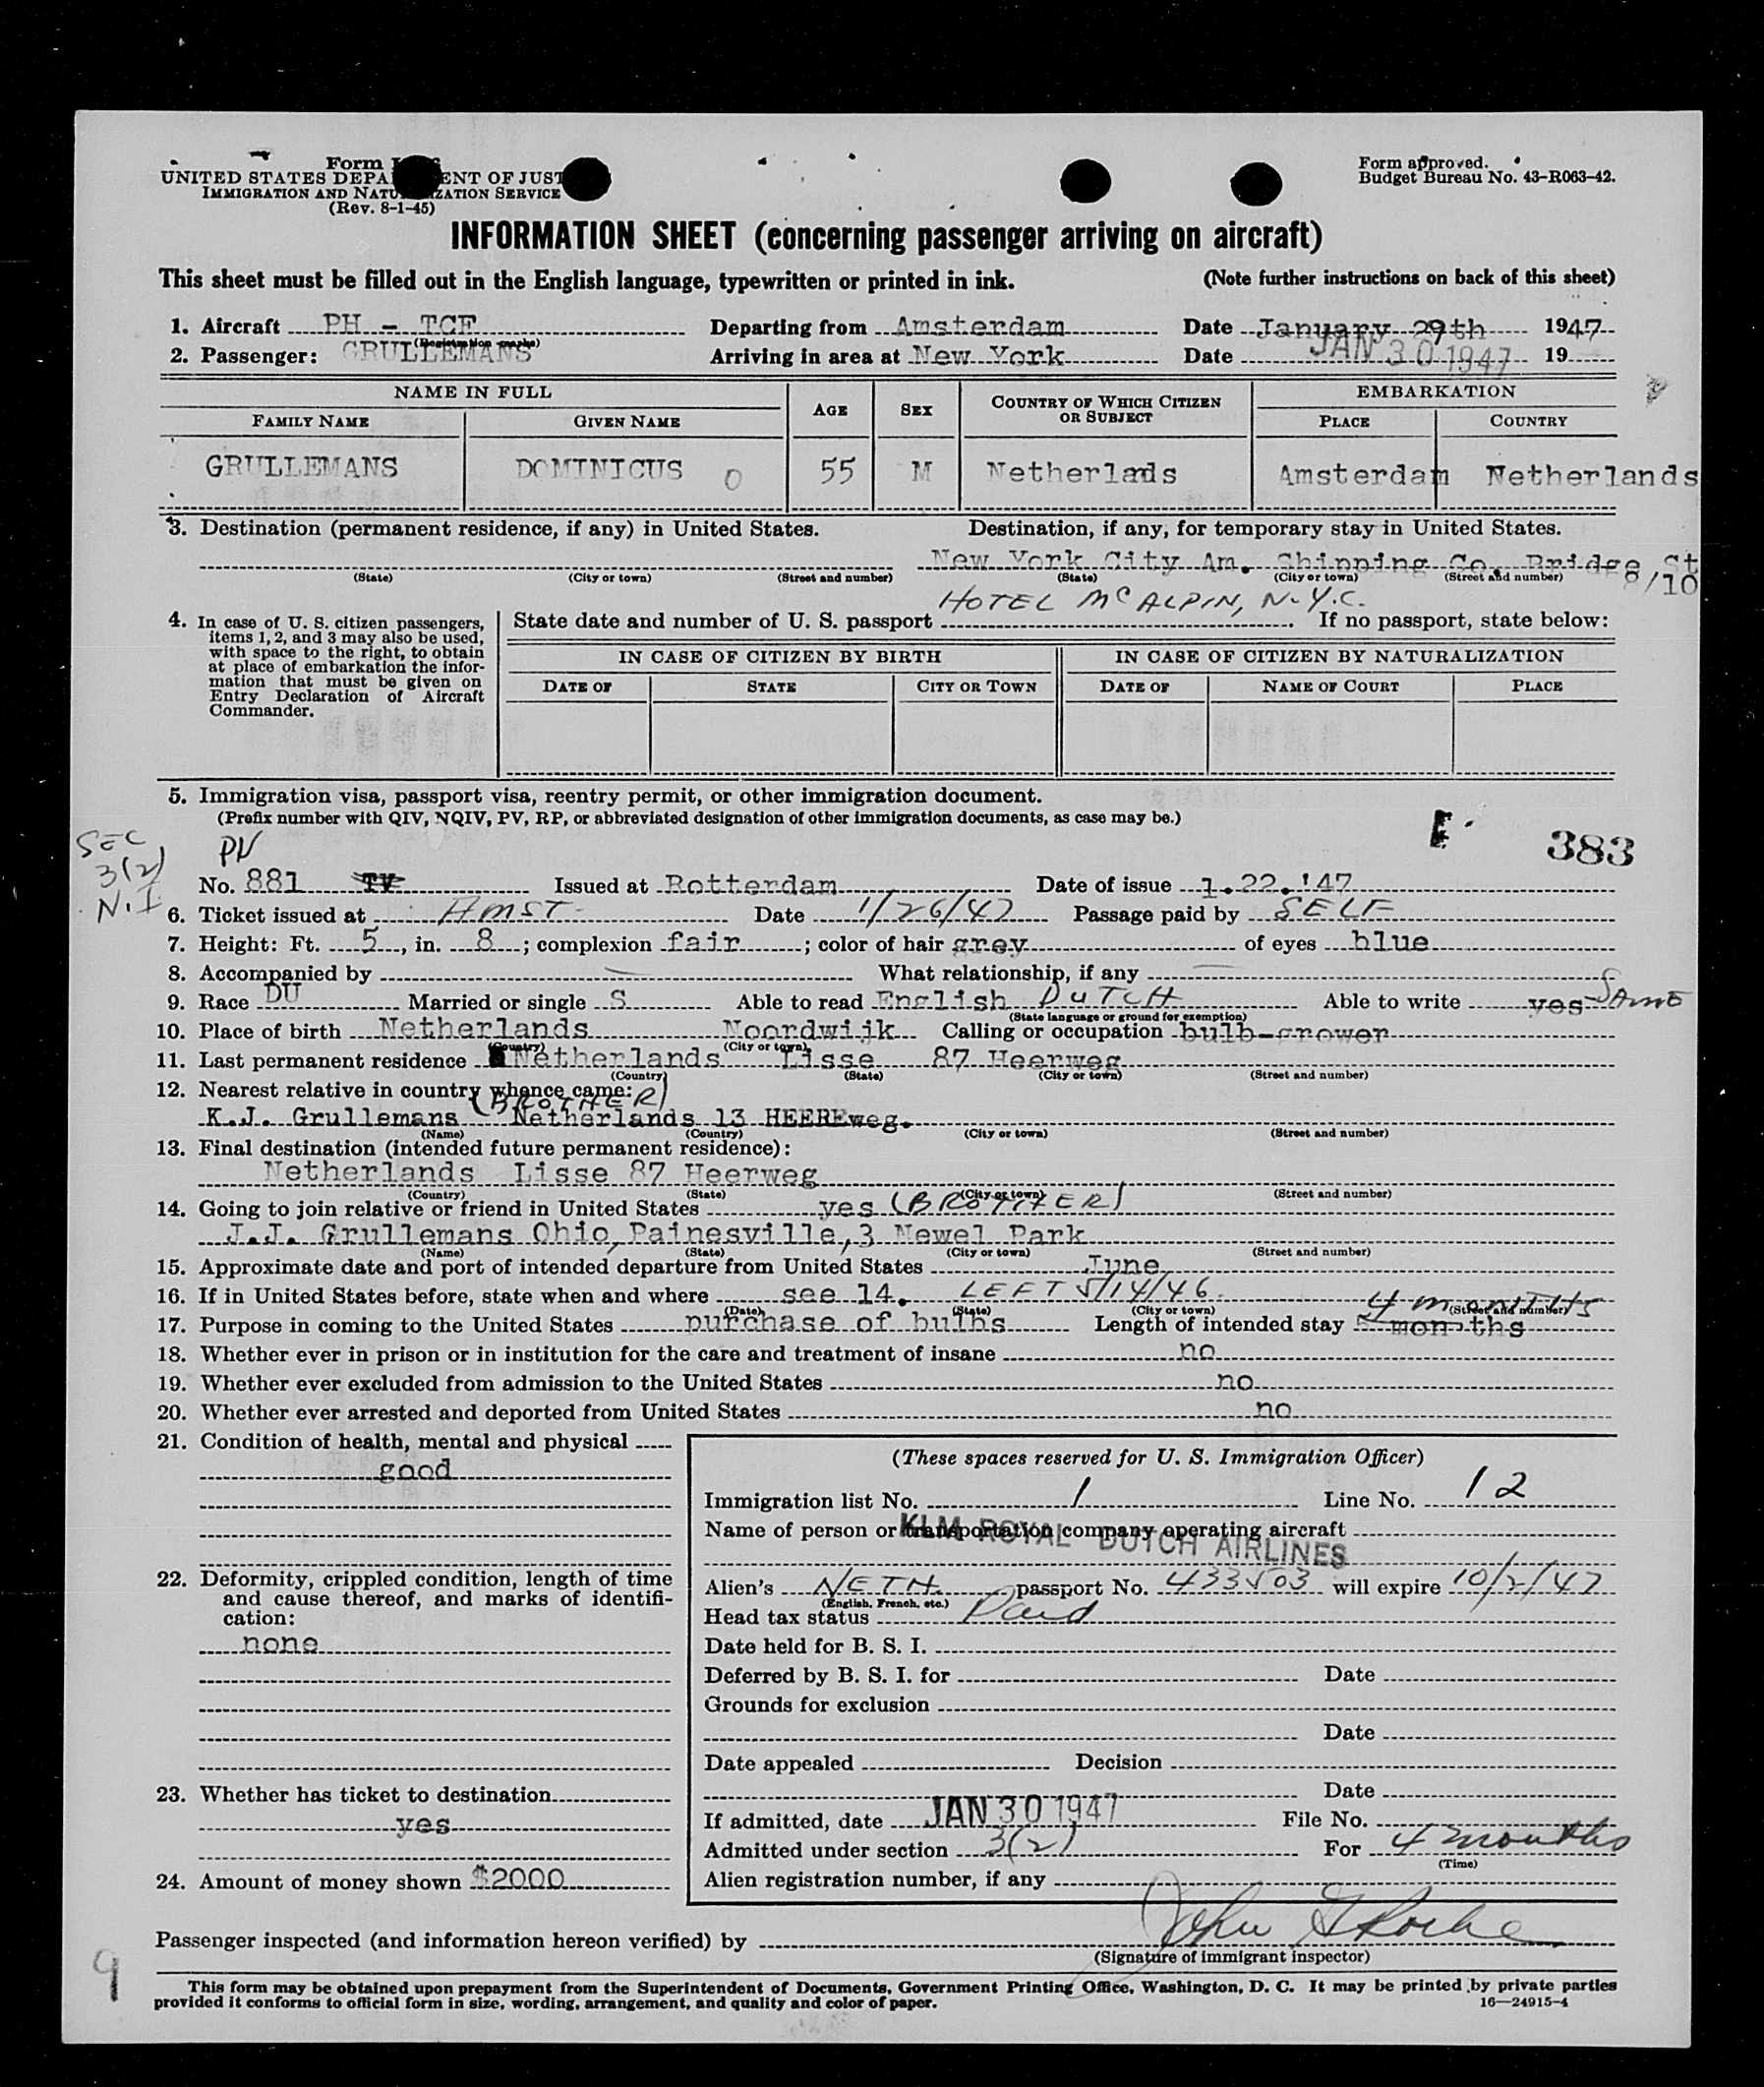 Form
UNITED STATES DEPA ENT OF JUST
IMMIGRATION AND NATU IZATION SERVICE
(Rev. 8-1-45)
Form approved.
Budget Bureau No. 43-R063-42.
INFORMATION SHEET (concerning passenger arriving on aircraft)
This sheet must be filled out in the English language, typewritten or printed in ink. (Note further instructions on back of this sheet)
1. Aircraft PH - TCF Departing from Amsterdam Date January 29th 1947
(Registration marks)
2. Passenger: GRULLEMANS Arriving in area at New York Date JAN 30 1947 19
NAME IN FULL AGE SEX COUNTRY OF WHICH CITIZEN OR SUBJECT EMBARKATION
FAMILY NAME GIVEN NAME PLACE COUNTRY
GRULLEMANS DOMINICUS O 55 M Netherlads Amsterdam Netherlands
3. Destination (permanent residence, if any) in United States. Destination, if any, for temporary stay in United States.
New York City Am. Shipping Co. Bridge St
8/10
(State) (City or town) (Street and number) (State) (City or town) (Street and number)
HOTEL McALPIN, N.Y.C.
4. In case of U. S. citizen passengers, items 1, 2, and 3 may also be used, with space to the right, to obtain at place of embarkation the information that must be given on Entry Declaration of Aircraft Commander.
State date and number of U. S. passport . If no passport, state below:
IN CASE OF CITIZEN BY BIRTH IN CASE OF CITIZEN BY NATURALIZATION
DATE OF STATE CITY OR TOWN DATE OF NAME OF COURT PLACE
5. Immigration visa, passport visa, reentry permit, or other immigration document.
(Prefix number with QIV, NQIV, PV, RP, or abbreviated designation of other immigration documents, as case may be.)
383
SEC
3(2)
N.I
PV
No. 881 TV Issued at Rotterdam Date of issue 1.22.'47
6. Ticket issued at AMST Date 1/26/47 Passage paid by SELF
7. Height: Ft. 5, in. 8; complexion fair; color of hair grey of eyes blue
8. Accompanied by — What relationship, if any —
9. Race DU Married or single S Able to read English DUTCH Able to write yes SAME
(State language or ground for exemption)
10. Place of birth Netherlands Noordwijk Calling or occupation bulb-grower
(Country) (City or town)
11. Last permanent residence Netherlands Lisse 87 Heerweg
(Country) (State) (City or town) (Street and number)
12. Nearest relative in country whence came:
(BROTHER)
K.J. Grullemans Netherlands 13 HEEREweg.
(Name) (Country) (City or town) (Street and number)
13. Final destination (intended future permanent residence):
Netherlands Lisse 87 Heerweg
(Country) (State) (City or town) (Street and number)
14. Going to join relative or friend in United States yes (BROTHER)
J.J. Grullemans Ohio, Painesville, 3 Newel Park
(Name) (State) (City or town) (Street and number)
15. Approximate date and port of intended departure from United States June
16. If in United States before, state when and where see 14. LEFT 5/14/46
(Date) (State) (City or town) (Street and number)
4 MONTHS
17. Purpose in coming to the United States purchase of bulbs Length of intended stay 5 months
18. Whether ever in prison or in institution for the care and treatment of insane no
19. Whether ever excluded from admission to the United States no
20. Whether ever arrested and deported from United States no
21. Condition of health, mental and physical
good
22. Deformity, crippled condition, length of time and cause thereof, and marks of identification:
none
23. Whether has ticket to destination
yes
24. Amount of money shown $2000
(These spaces reserved for U. S. Immigration Officer)
Immigration list No. 1 Line No. 12
Name of person or transportation company operating aircraft
KLM ROYAL DUTCH AIRLINES
Alien's NETH. passport No. 433503 will expire 10/2/47
(English, French, etc.)
Head tax status Paid
Date held for B. S. I.
Deferred by B. S. I. for Date
Grounds for exclusion
Date
Date appealed Decision
Date
If admitted, date JAN 30 1947 File No.
Admitted under section 3(2) For 4 months
(Time)
Alien registration number, if any
Passenger inspected (and information hereon verified) by John Roche
(Signature of immigrant inspector)
9
This form may be obtained upon prepayment from the Superintendent of Documents, Government Printing Office, Washington, D. C. It may be printed by private parties
provided it conforms to official form in size, wording, arrangement, and quality and color of paper. 16—24915-4